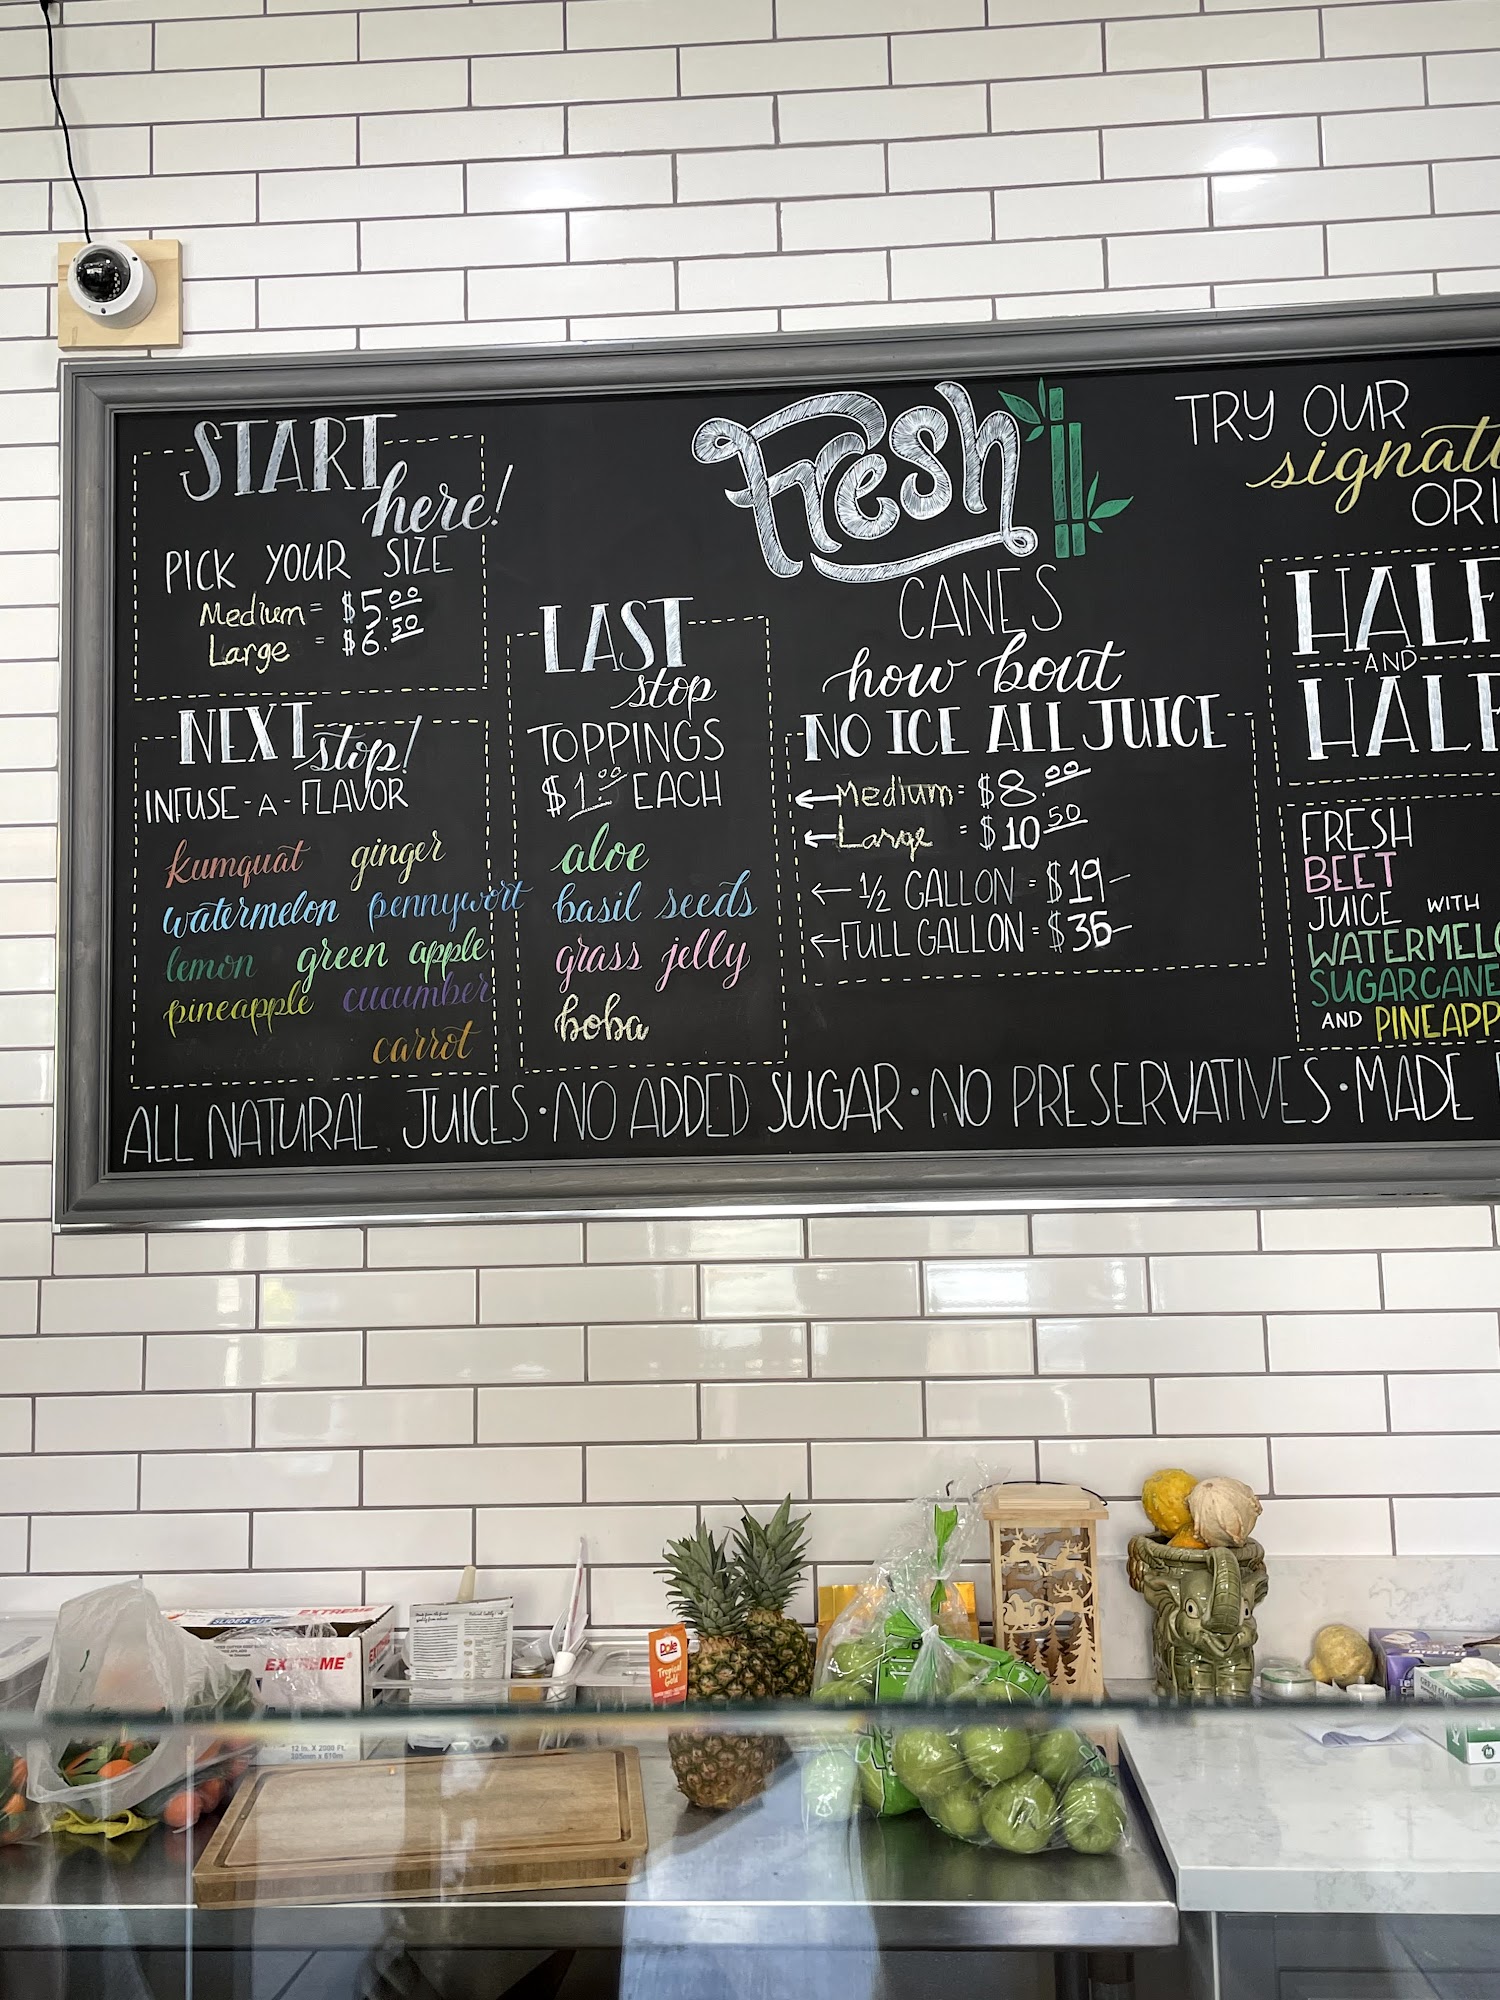 START
here!
PICK YOUR SIZE
Medium = $5.00
Large = $6.50
NEXT
stop!
INFUSE-A-FLAVOR
kumquat ginger
watermelon pennywort
lemon green apple
pineapple cucumber
carrot
LAST
stop
TOPPINGS
$1.00 EACH
aloe
basil seeds
grass jelly
boba
Fresh
CANES
how bout
NO ICE ALL JUICE
←Medium = $8.00
←Large = $10.50
←1/2 GALLON = $19-
←FULL GALLON = $36-
TRY OUR
signat
ORI
HALF
AND
HALF
FRESH
BEET
JUICE WITH
WATERMELO
SUGARCANE
AND PINEAPP
ALL NATURAL JUICES • NO ADDED SUGAR • NO PRESERVATIVES • MADE
SLIDER CUT
EXTREME
EXTREME
12 in. X 2000 Ft.
305mm x 610m
Dole
Tropical
Gold